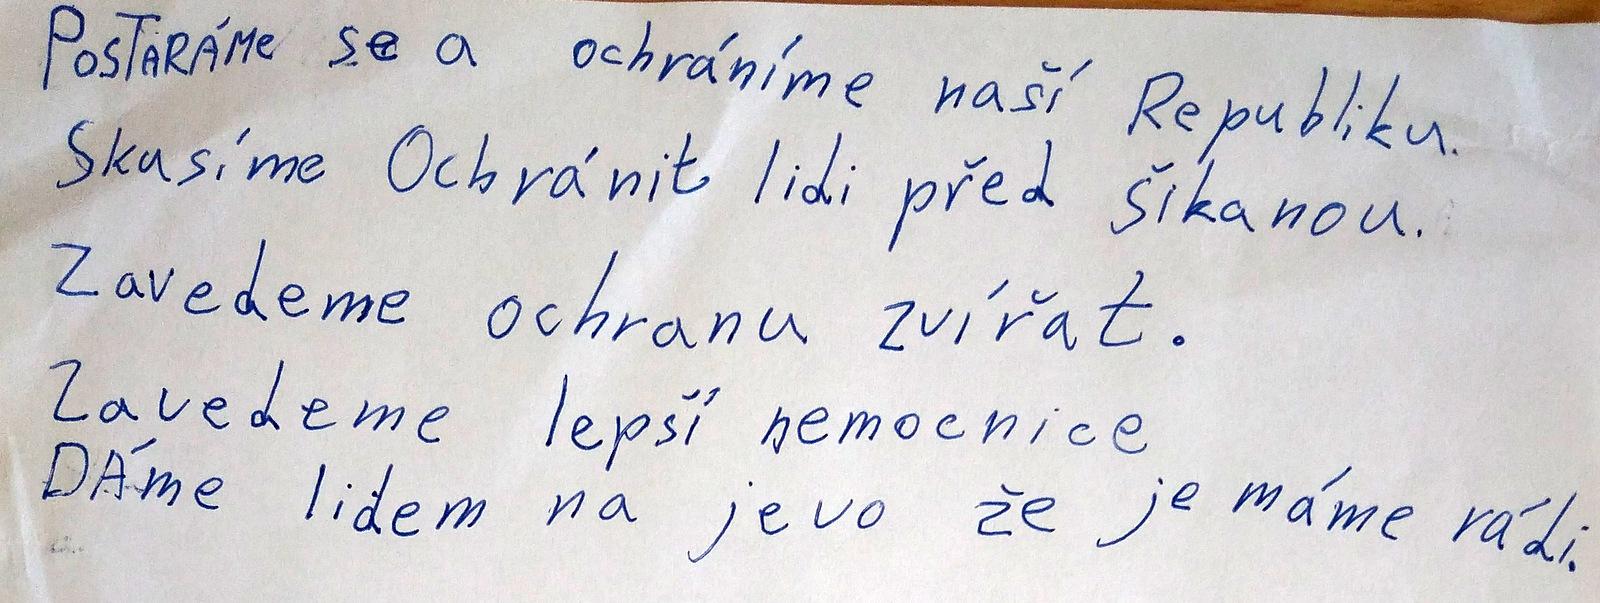 POSTARÁMe se a ochráníme naší Republiku.
Skusíme Ochránit lidi před šikanou.
Zavedeme ochranu zvířat.
Zavedeme lepší nemocnice
DÁme lidem na jevo že je máme rádi.